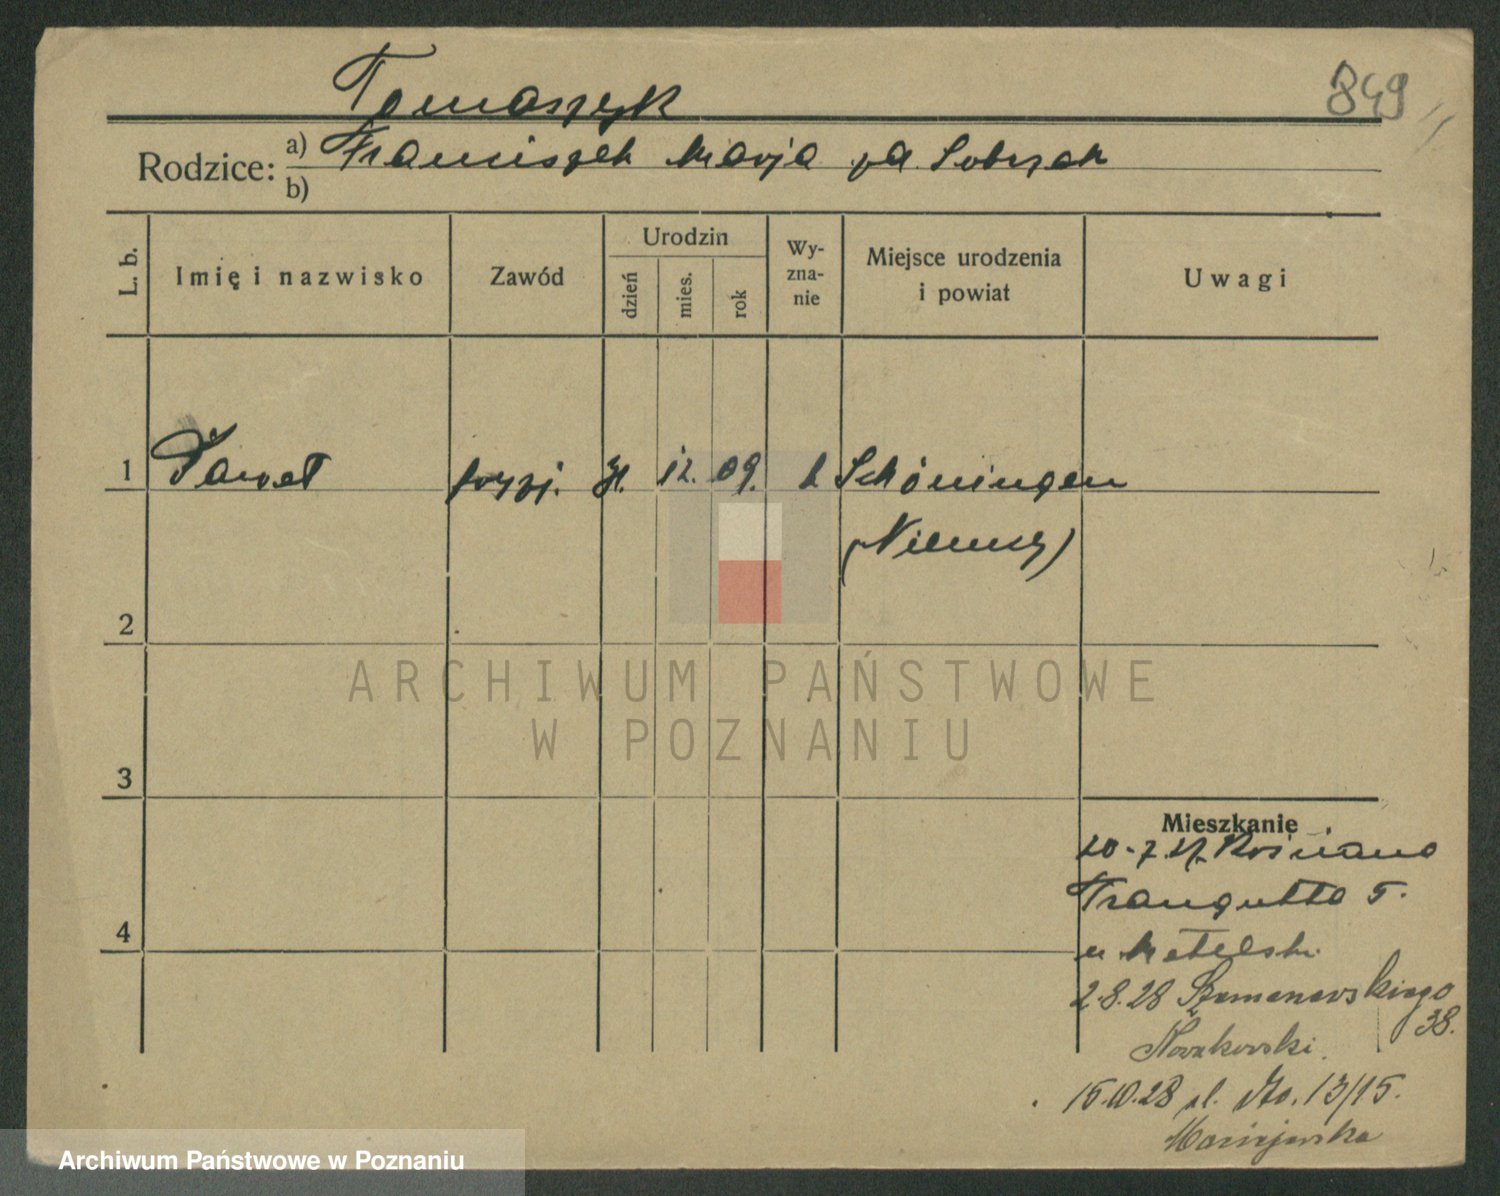 849
Tomaszyk
Rodzice: a) Franciszek Marja zd. Sobczak
b)
L. b. Imię i nazwisko Zawód Urodzin dzień mies. rok Wy-zna-nie Miejsce urodzenia i powiat Uwagi
1 Paweł fryzj. 31. 12. 09. k Schöningen
(Niemcy)
2
3
4
Mieszkanie
20.7.27. Kościana
Traugutta 5.
u Metelski
2.8.28 Szamarzewskiego
38.
Nowakowski.
15.10.28 pl. 13/15.
Maciejewska
ARCHIWUM PAŃSTWOWE
W POZNANIU
Archiwum Państwowe w Poznaniu